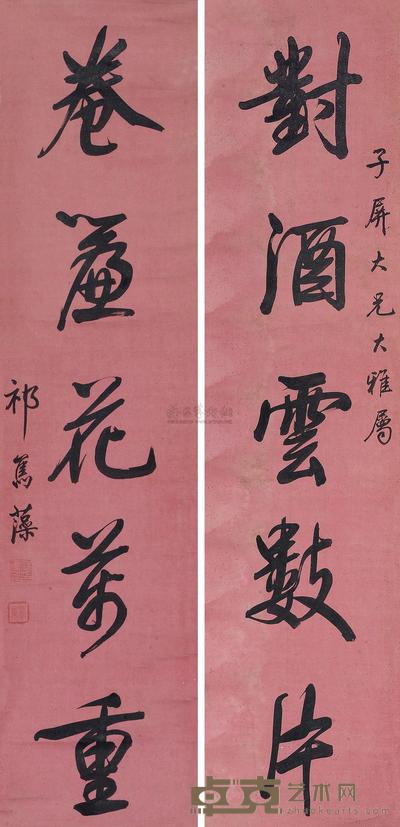 對酒雲數片
子屏大兄大雅屬
卷簾花萬重
祁寯藻
卓克艺术网
zhuokearts.com